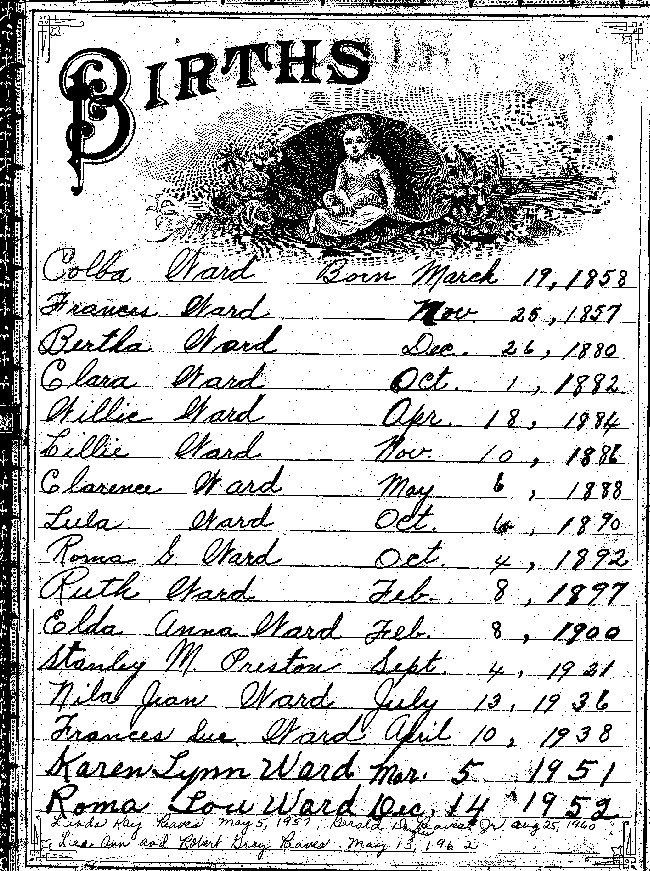 BIRTHS
Colba Ward Born March 19, 1858
Frances Ward Nov 25, 1857
Bertha Ward Dec. 26, 1880
Clara Ward Oct. 1, 1882
Willie Ward Apr. 18, 1884
Lillie Ward Nov. 10, 1886
Clarence Ward May 6, 1888
Lula Ward Oct. 6, 1890
Roma G Ward Oct 4, 1892
Ruth Ward Feb. 8, 1897
Elda Anna Ward Feb. 8, 1900
Stanley M. Preston Sept. 4, 1921
Nila Jean Ward July 13, 1936
Frances Sue Ward April 10, 1938
Karen Lynn Ward Mar. 5 1951
Roma Lou Ward Dec, 14 1952
Linda Kay Reaves May 5, 1957, Gerald Reaves Jr. Aug 25, 1960
Lee Ann and Robert Greg Reaves May 13, 1962